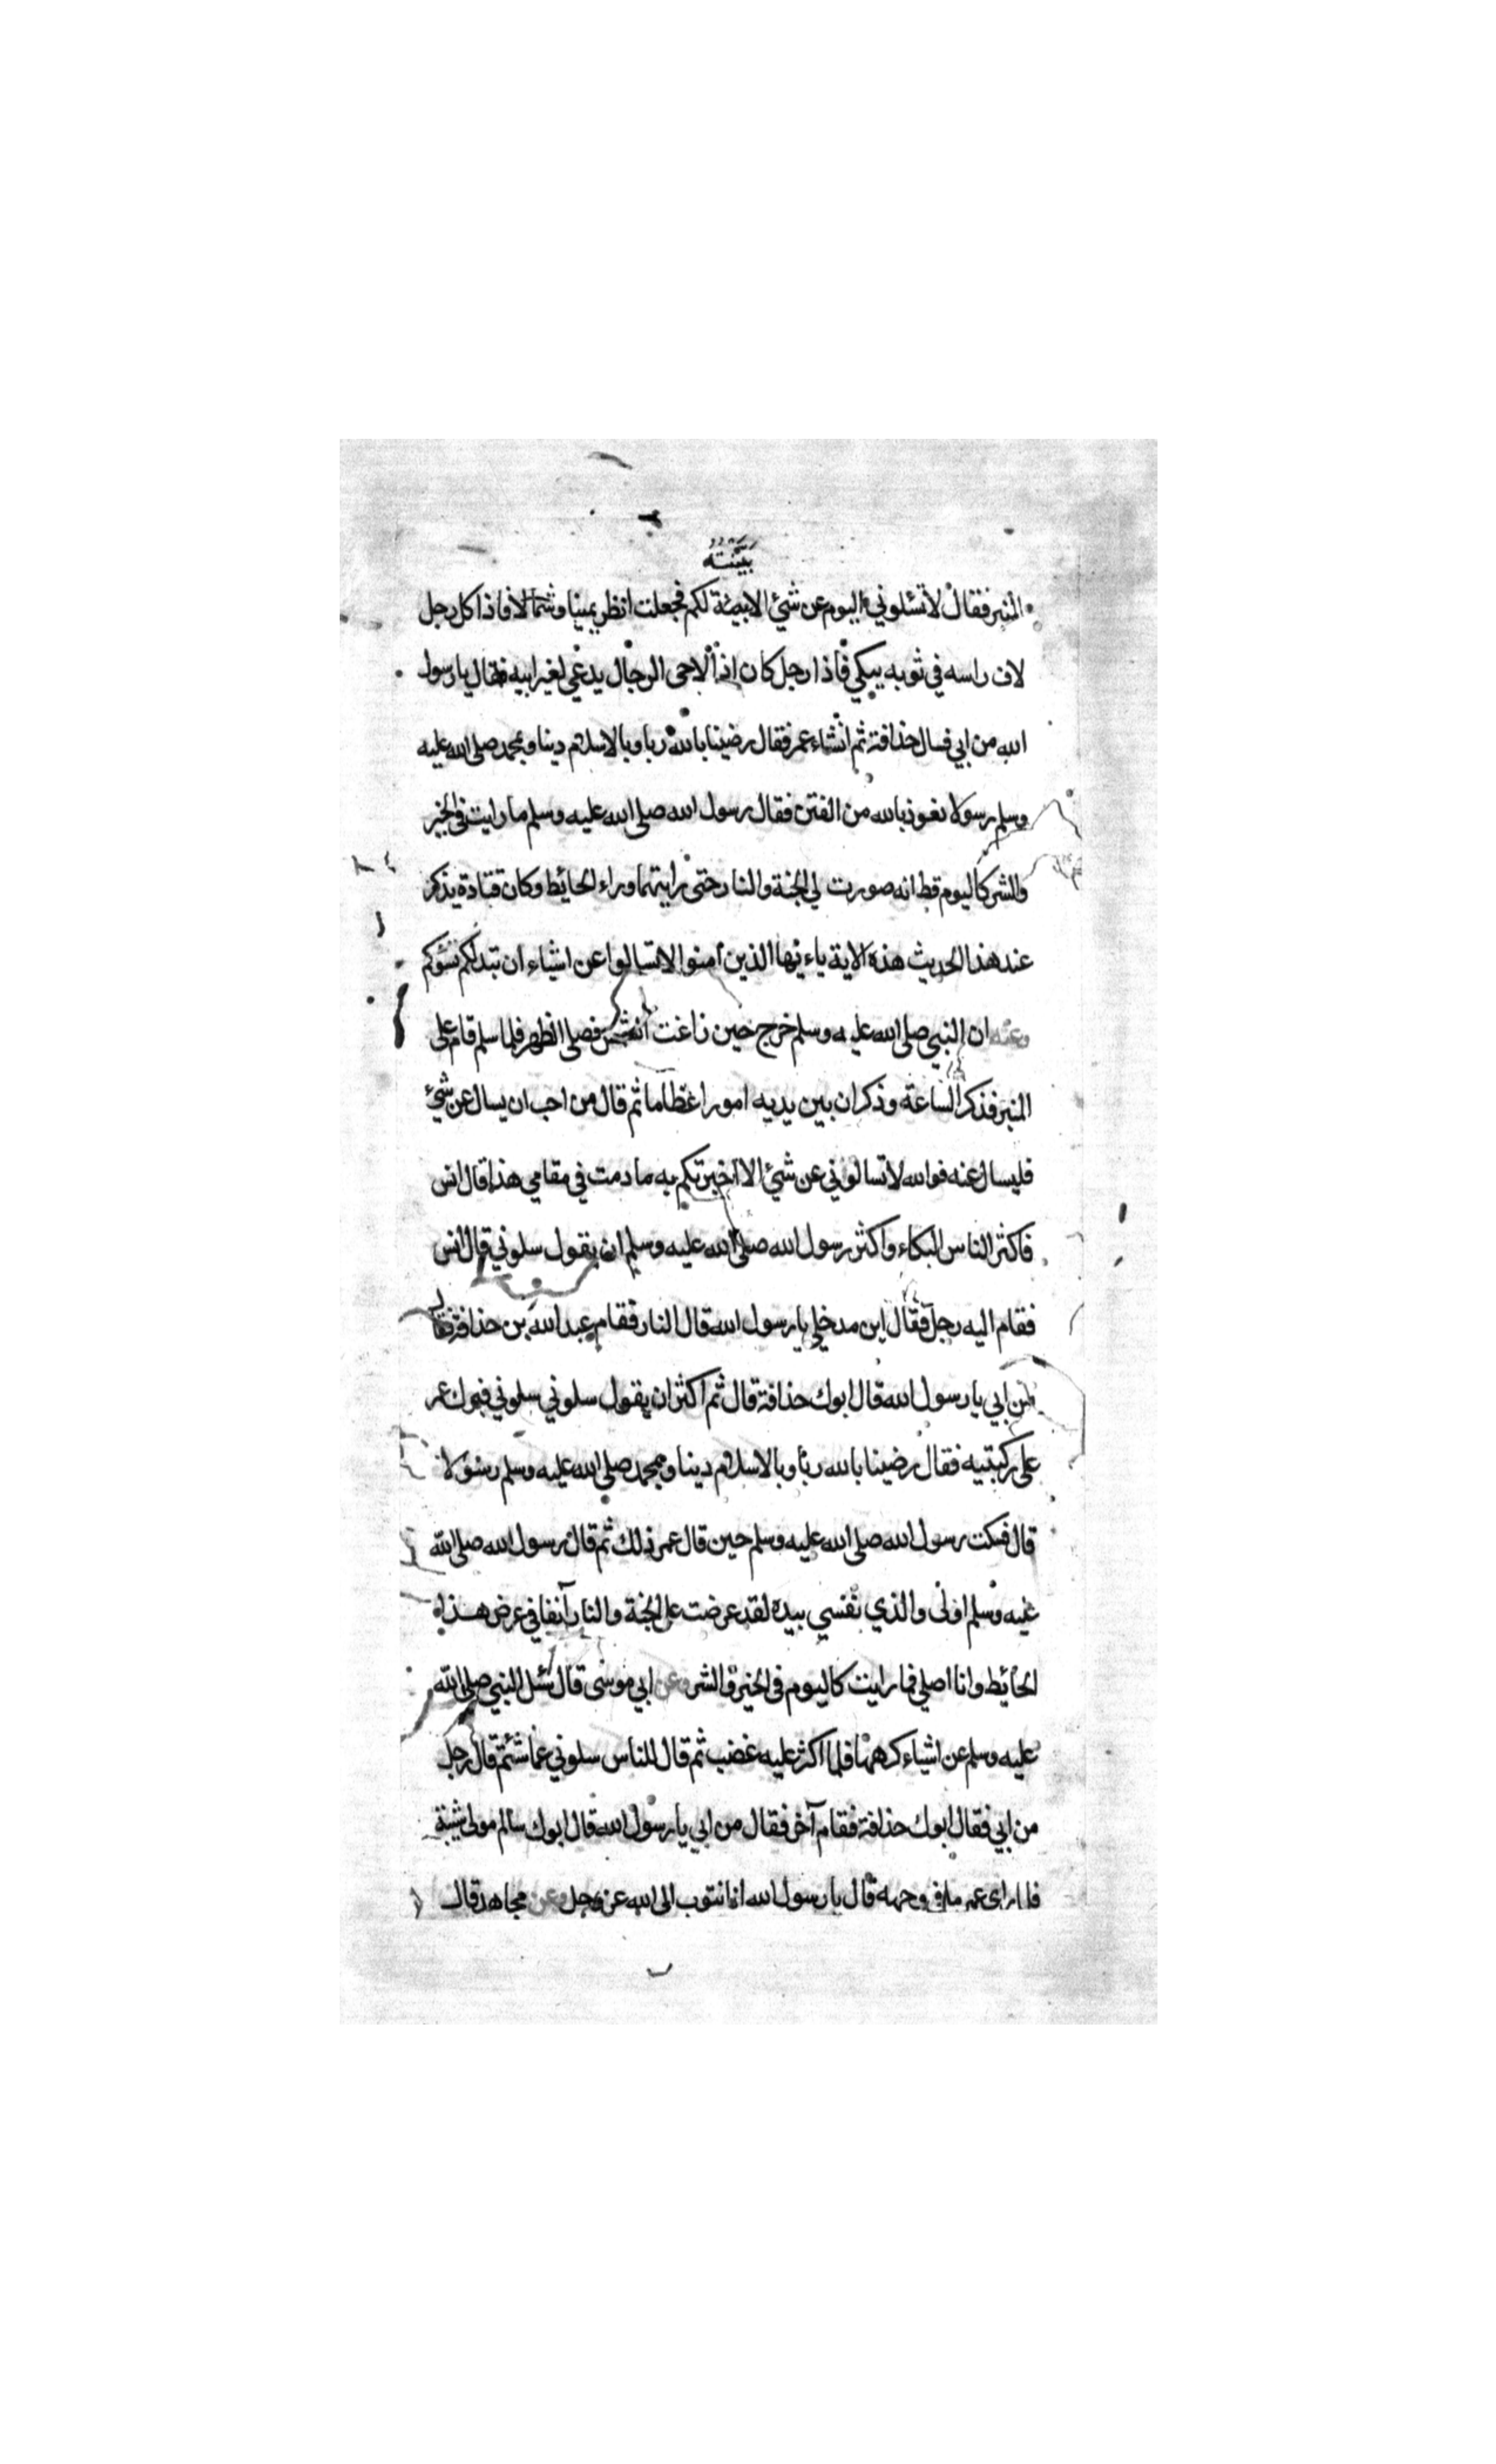 بينته
المنبر فقال لا تسئلوني اليوم عن شئ الا بينته لكم فجعلت انظر يمينا وشمالا فاذا كل رجل
لاف راسه في ثوبه يبكي فاذا رجل كان اذا لاحى الرجال يدعى لغير ابيه فقال يا رسول
الله من ابي فسال حذافة ثم انشاء عمر فقال رضينا بالله ربا وبالاسلام دينا وبمحمد صلى الله عليه
وسلم رسولا نعوذ بالله من الفتن فقال رسول الله صلى الله عليه وسلم ما رايت في الخير
والشر كاليوم قط انه صورت لي الجنة والنار حتى رايتهما وراء الحائط وكان قتادة يذكر
عند هذا الحديث هذه الاية ياءيها الذين امنوا لا تسالوا عن اشياء ان تبد لكم تسؤكم
وعنه ان النبي صلى الله عليه وسلم خرج حين زاغت الشمس فصلى الظهر فلما سلم قام على
المنبر فذكر الساعة وذكر ان بين يديه امورا عظاما ثم قال من احب ان يسال عن شئ
فليسال عنه فوالله لا تسالوني عن شئ الا اخبرتكم به ما دمت في مقامي هذا قال انس
فاكثر الناس البكاء واكثر رسول الله صلى الله عليه وسلم ان يقول سلوني قال انس
فقام اليه رجل فقال اين مدخلي يا رسول الله قال النار فقام عبد الله بن حذافة فقال
من ابي يا رسول الله قال ابوك حذافة قال ثم اكثر ان يقول سلوني سلوني فبرك عمر
على ركبتيه فقال رضينا بالله ربا وبالاسلام دينا وبمحمد صلى الله عليه وسلم رسولا
قال فسكت رسول الله صلى الله عليه وسلم حين قال عمر ذلك ثم قال رسول الله صلى الله
عليه وسلم اولى والذي نفسي بيده لقد عرضت على الجنة والنار آنفا في عرض هذا
الحائط وانا اصلي فما رايت كاليوم في الخير والشر وعن ابي موسى قال سئل النبي صلى الله
عليه وسلم عن اشياء كرهها فلما اكثر عليه غضب ثم قال للناس سلوني عما شئتم قال رجل
من ابي فقال ابوك حذافة فقام آخر فقال من ابي يا رسول الله قال ابوك سالم مولى شيبة
فلما راى عمر ما في وجهه قال يا رسول الله انا نتوب الى الله عز وجل وعن مجاهد قال